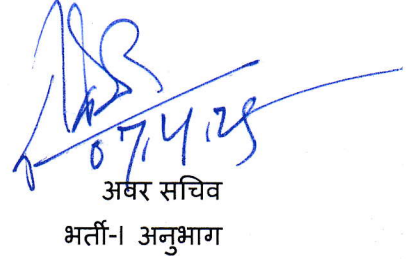 07.4.25
अवर सचिव
भर्ती-I अनुभाग